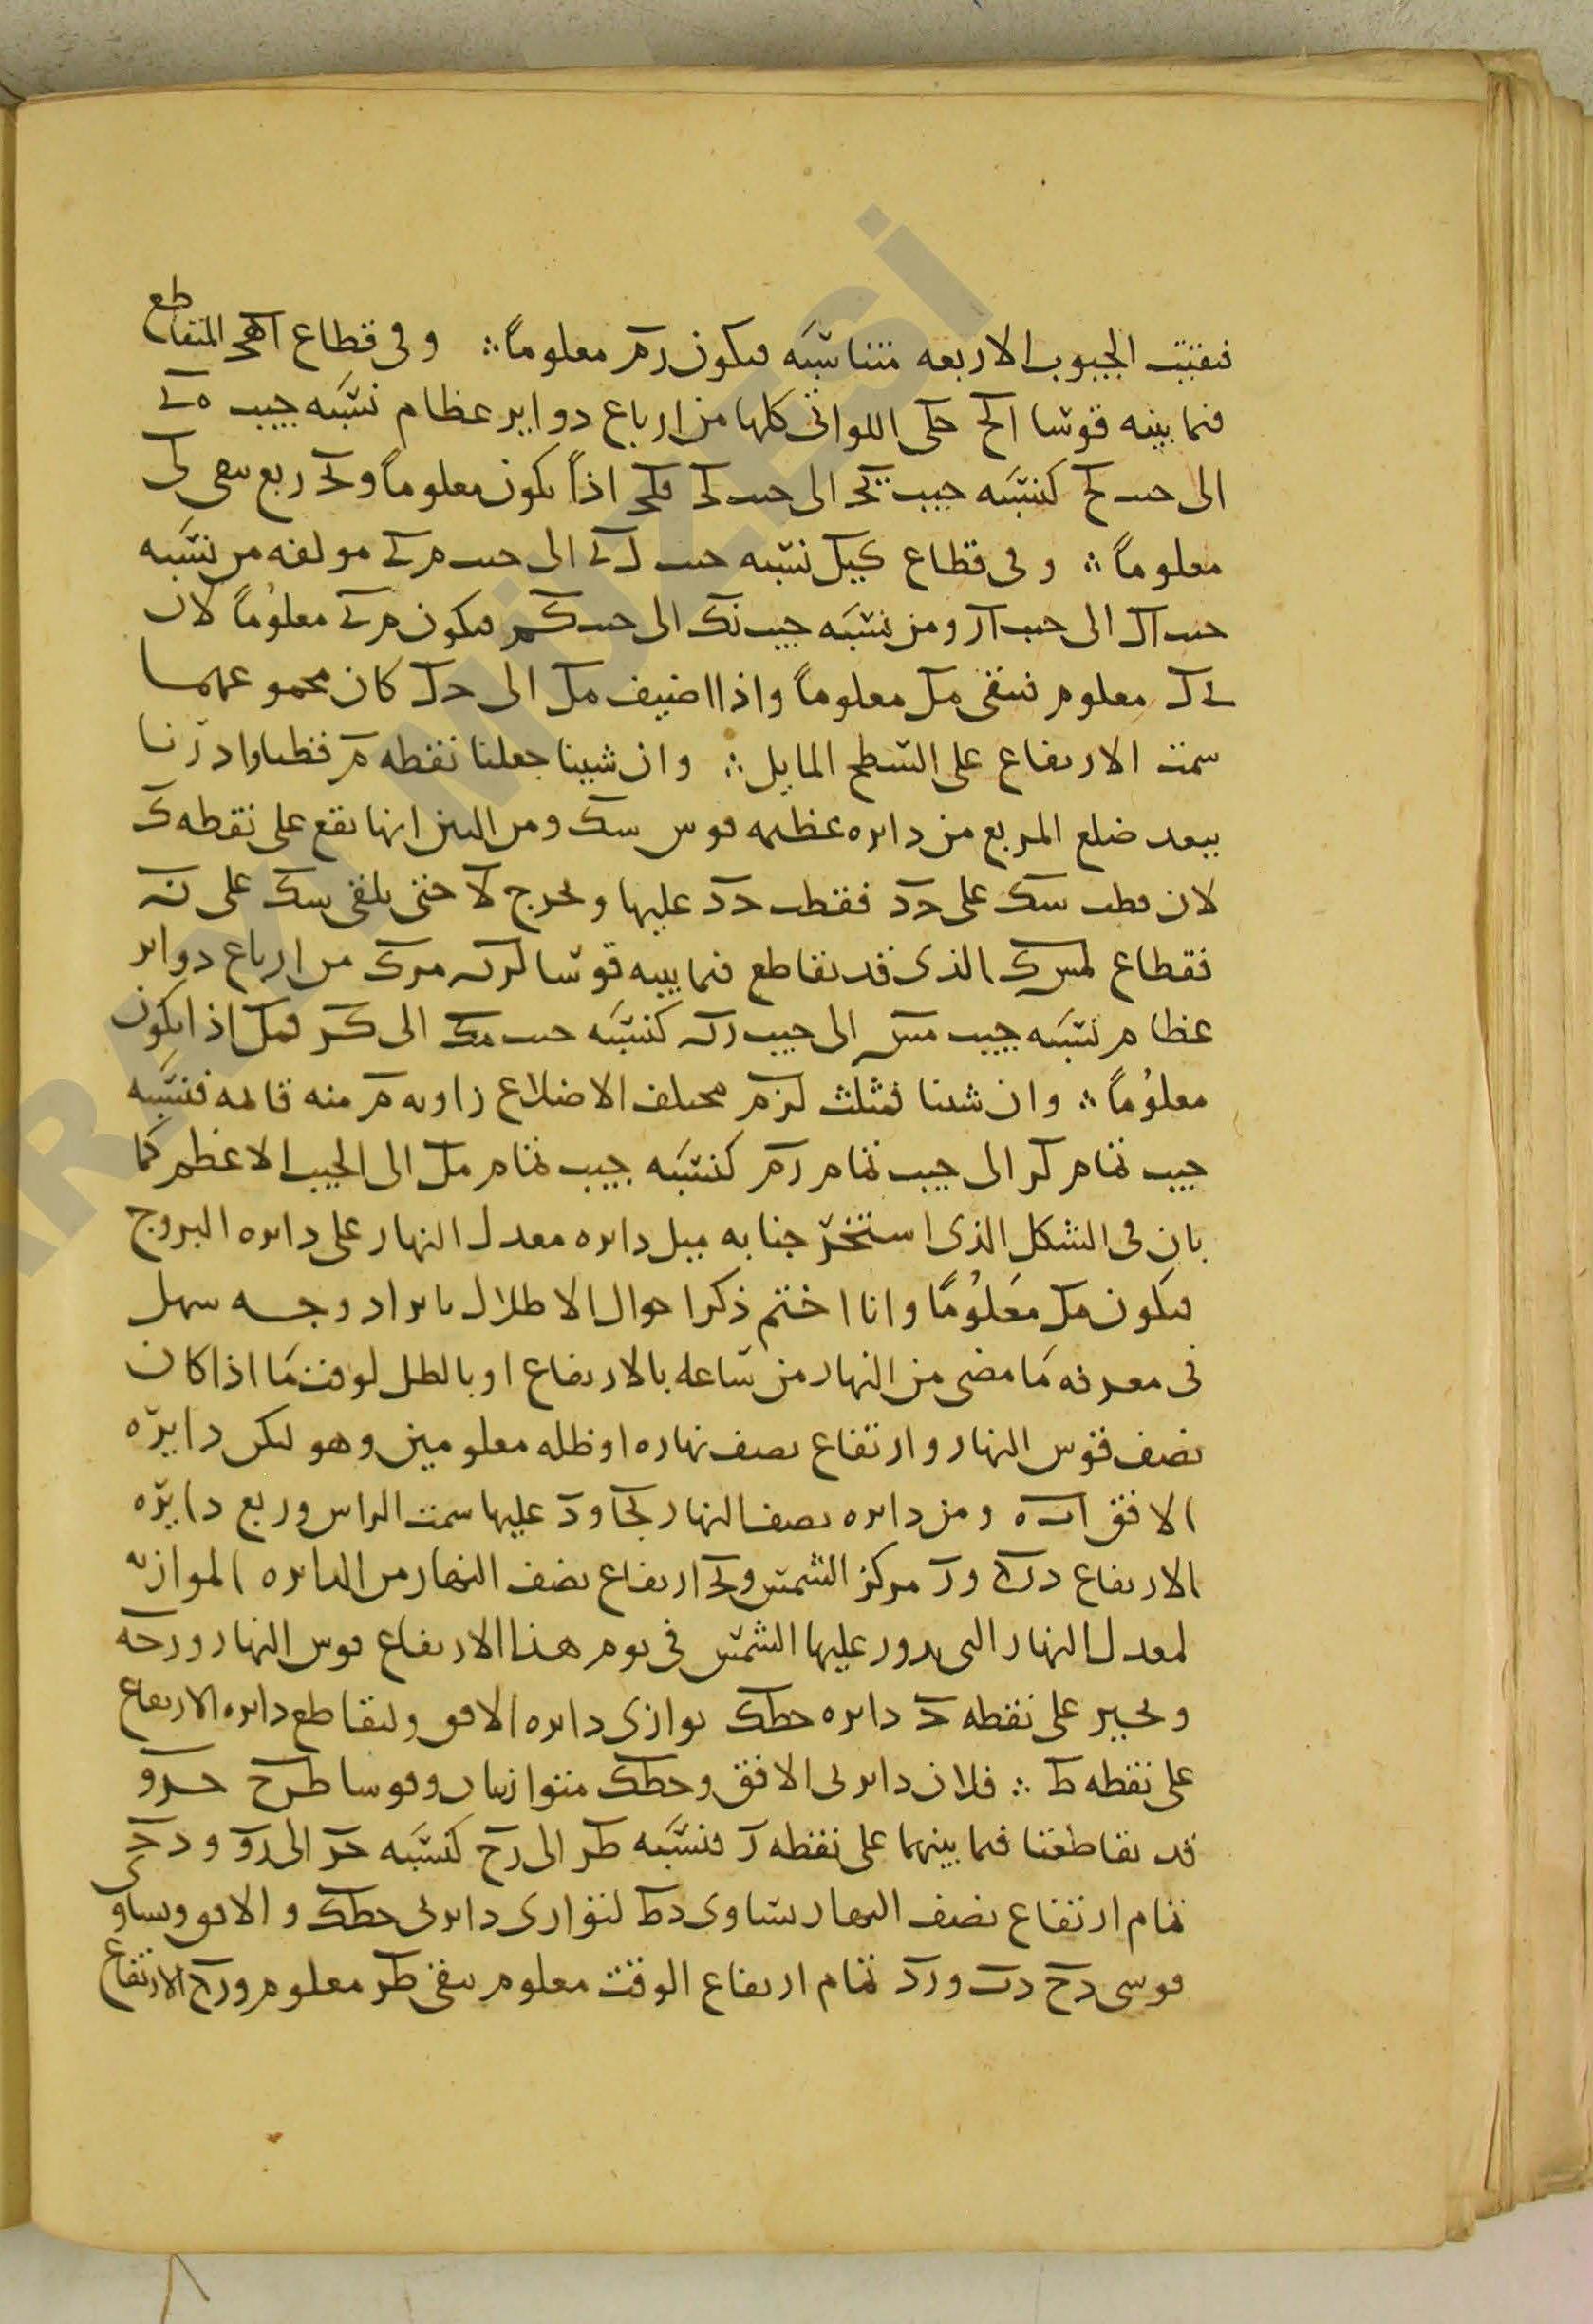 فبقيت الجيوب الاربعه متناسبه فيكون رم معلوماً ∴ وفى قطاع اهحـ المتقاطع
فيما بينه قوسا اكح حكى اللواتى كلها من ارباع دواير عظام نسبه جيب ه ى
الى جيب كح كنسبه جيب الى جيب اذاً يكون معلوماً ولح ربع يبقى لى
معلوماً ∴ وفى قطاع نسبه جيب ل ى الى جيب م ى مولفه من نسبه
جيب ال الى جيب ار ومن نسبه جيب رك الى جيب كم فيكون م ى معلوُماً لان
ى ل معلوم فيبقى مل معلوماً واذا اضيف مل الى حل كان مجموعهما
سمت الارتفاع على السطح المايل ∴ وان شينا جعلنا نقطه م قطبا وادرنا
ببعد ضلع المربع من دائره عظيمه قوس سك ومن البين انها تقع على نقطه ك
لان قطب سك على حد فقطب حد عليها ويخرج لا حتى يلقى سك على نه
فقطاع لمسك الذى قد تقاطع فيما بينه قوسا مرك من ارباع دواير
عظام نسبه جيب مس الى جيب كنسبه جيب مك الى كر فمل اذا يكون
معلوُماً ∴ وان شينا فمثلث لرم مختلف الاضلاع زاويه م منه قائمه فنسبه
جيب تمام لر الى جيب تمام رم كنسبه جيب تمام مل الى الجيب الاعظم كما
بان فى الشكل الذى استخرجنا به ميل دائره معدل النهار على دائره البروج
فيكون مل معَلوُمًا وانا اختم ذكر احوال الاظلال بايراد وجه سهل
فى معرفه مَا مضى من النهار من ساعه بالارتفاع او بالظل لوقت مَا اذا كان
نصف قوس النهار وارتفاع نصف نهاره او ظله معلومين وهو ليكن دايره
الافق اب ه ومن دائره نصف النهار لحا ود عليها سمت الراس وربع دايره
الارتفاع درح ور مركز الشمس ولح ارتفاع نصف النهار من الدائره الموازيه
لمعدل النهار التى يدور عليها الشمس فى يوم هذا الارتفاع قوس النهار ورحه
ويجيز على نقطه ح دائره حطك يوازى دائره الافق وليقاطع دائره الارتفاع
على نقطه ط ∴ فلان دايرتى الافق وحطك متوازيتان وقوسا طرح حرو
قد تقاطعتا فيما بينهما على نقطه ر فنسبه طر الى رح كنسبه حر الى رو و دح
تمام ارتفاع نصف النهار يساوى دط لتوازى دايرتى حطك والافق وتساوى
قوسى دح دب ورد تمام ارتفاع الوقت معلوم يبقى طر معلوم ورح الارتفاع